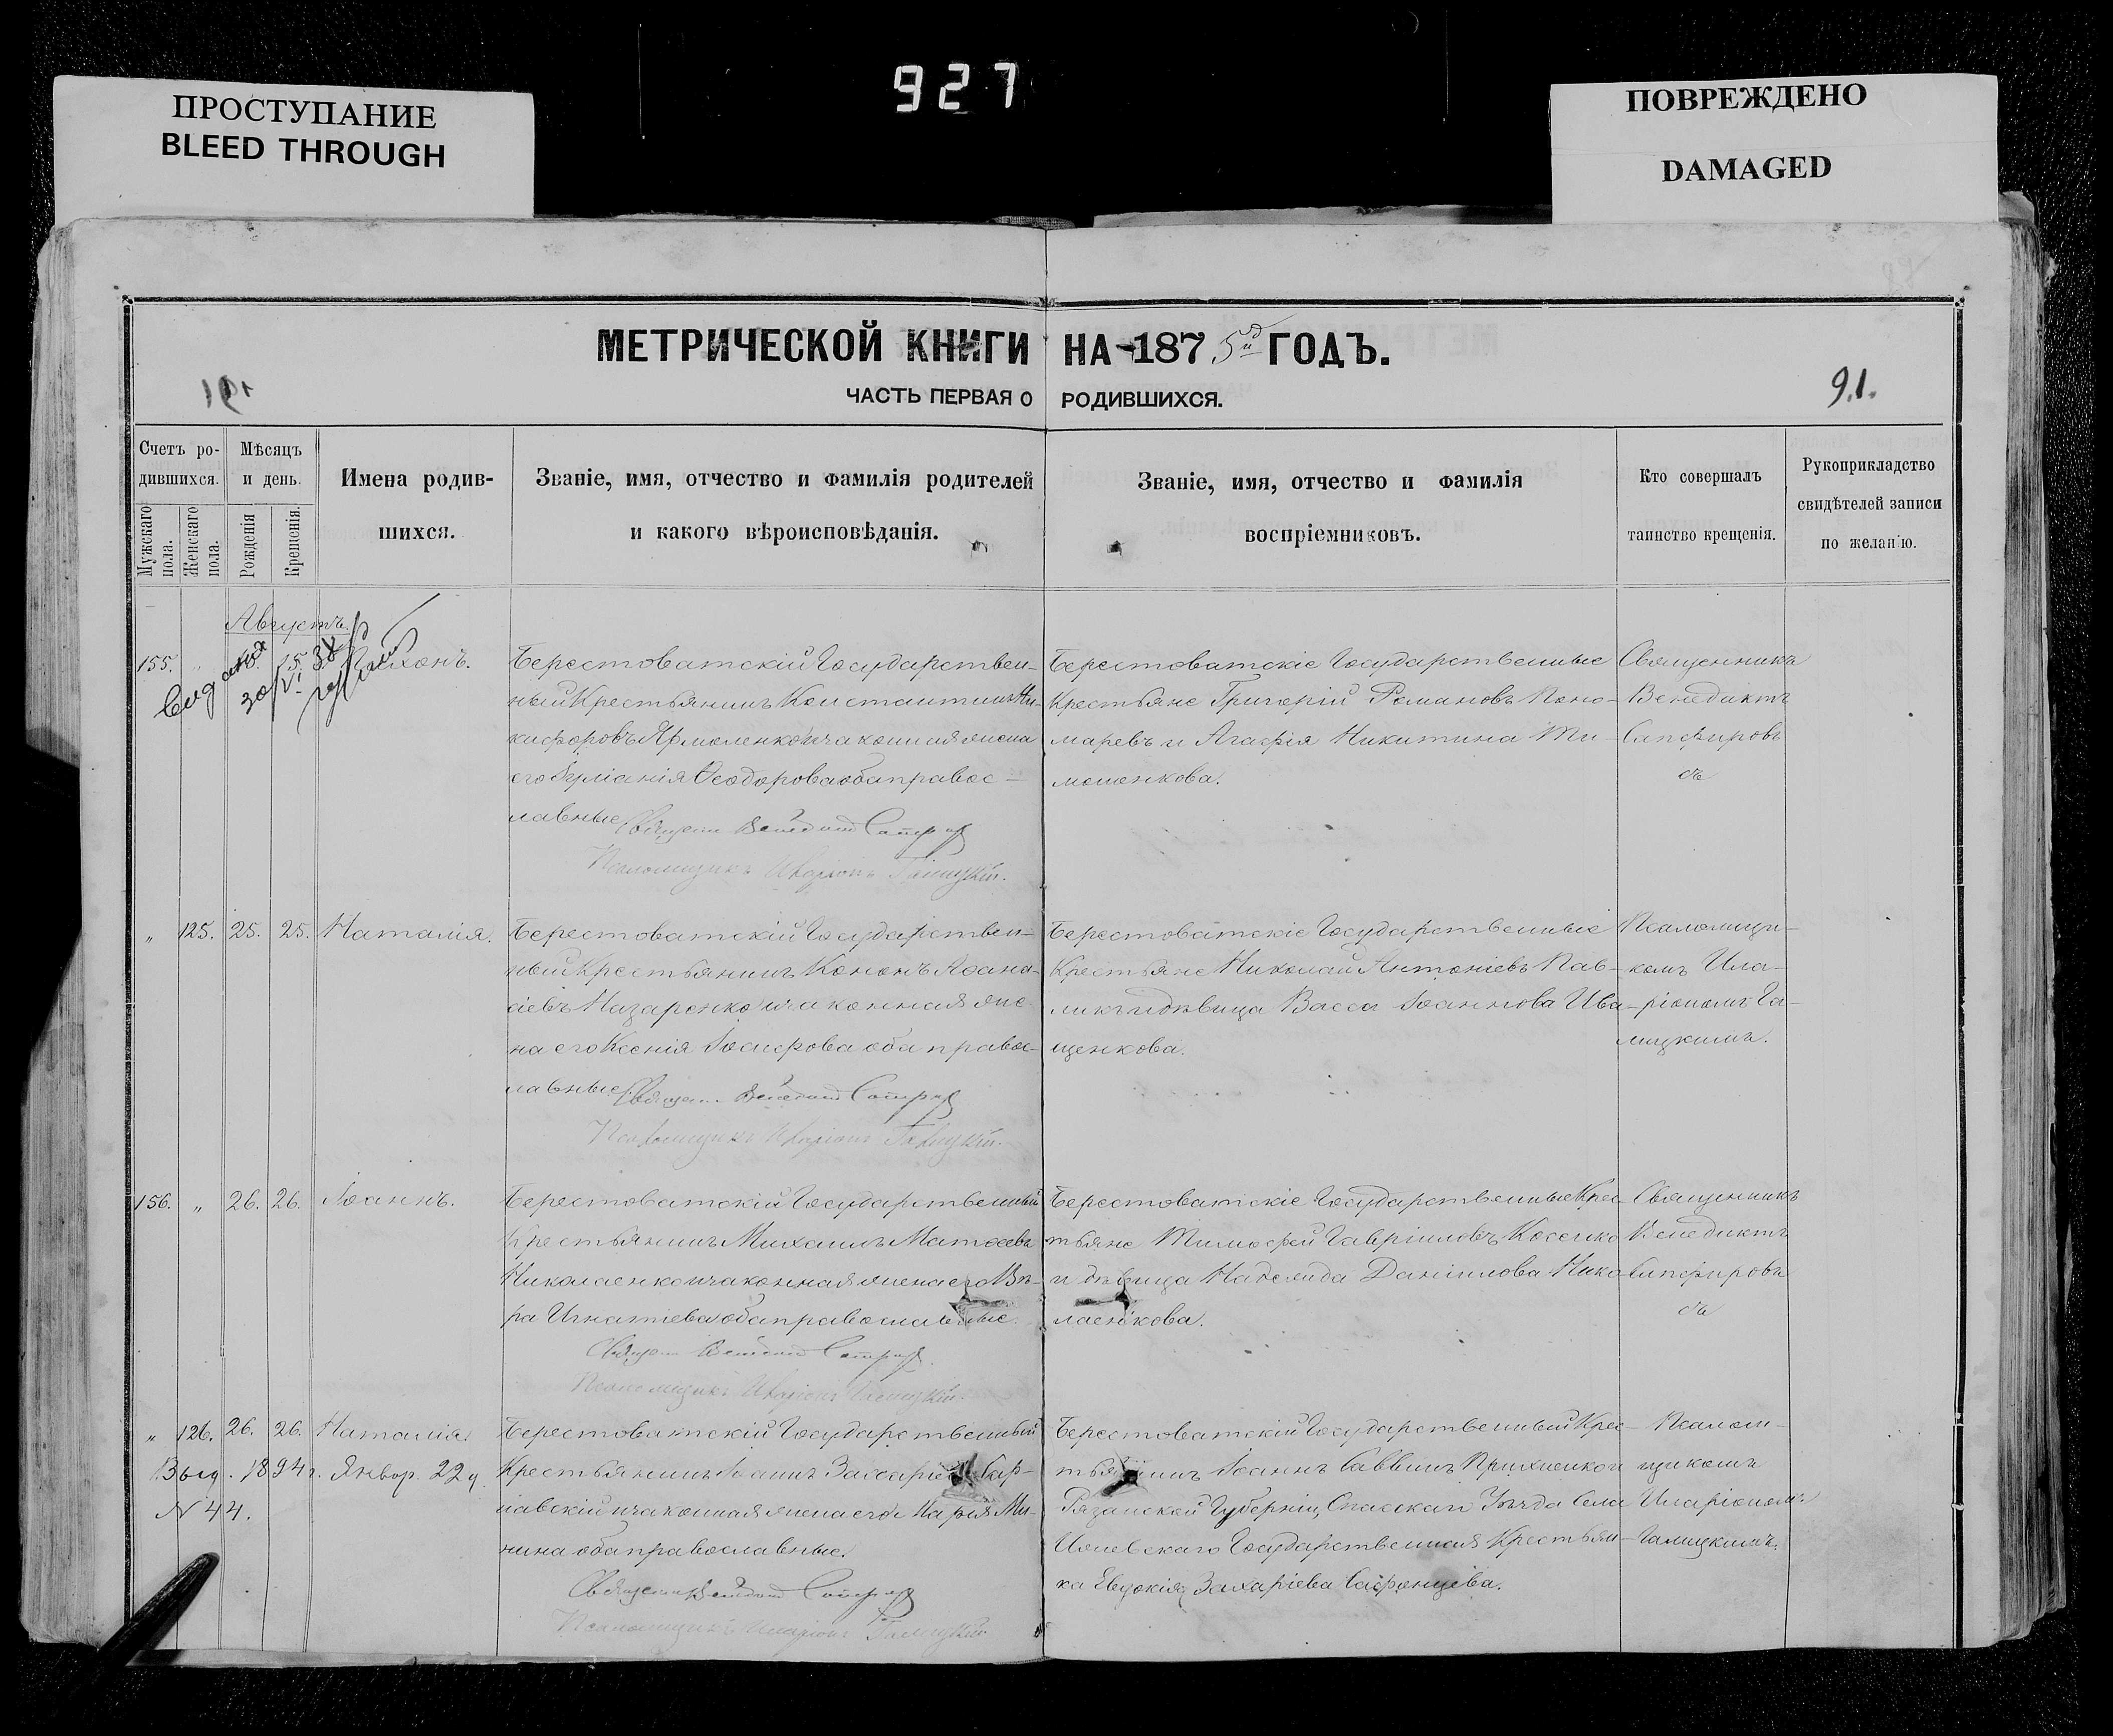 927
ПРОСТУПАНИЕ
BLEED THROUGH
ПОВРЕЖДЕНО
DAMAGED
МЕТРИЧЕСКОЙ КНИГИ НА 1875й ГОДЪ.
ЧАСТЬ ПЕРВАЯ О РОДИВШИХСЯ.
91.
Счетъ родившихся.
Мужскаго пола.
Женскаго пола.
Мѣсяцъ и день.
Рожденія
Крещенія.
Имена родив-
шихся.
Званіе, имя, отчество и фамилія родителей
и какого вѣроисповѣданія.
Званіе, имя, отчество и фамилія
воспріемниковъ.
Кто совершалъ
таинство крещенія.
Рукоприкладство
свидѣтелей записи
по желанію.
Августъ.
155. "
Берестоватскій Государствен-
ный Крестьянинъ Константинъ Ни-
кифоровъ Ярмоленко и законная жена
его Іуліанія Ѳеодорова оба правос-
лавные.
Священ. Венедиктъ Сапфировъ
Псаломщикъ Иларіонъ Галицкій.
Берестоватскіе Государственные
Крестьяне Григорій Романовъ Поно-
маревъ и Агафія Никитина Ти-
мошенкова.
Священникъ
Венедиктъ
Сапфировъ
съ
" 125. 25. 25. Наталія.
Берестоватскій Государствен-
ный Крестьянинъ Кононъ Аѳана-
сіевъ Назаренко и законная же-
на его Ксенія Іосифова оба правос-
лавные.
Священ. Венедиктъ Сапфировъ
Псаломщикъ Иларіонъ Галицкій.
Берестоватскіе Государственные
Крестьяне Николай Антоніевъ Пав-
ликъ и дѣвица Васса Іоаннова Ива-
щенкова.
Псаломщи-
комъ Ила-
ріономъ Га-
лицкимъ.
156. " 26. 26. Іоаннъ.
Берестоватскій Государственный
Крестьянинъ Михаилъ Матѳеевъ
Николаенко и законная жена его Вѣ-
ра Игнатіева оба православные.
Священ. Венедиктъ Сапфировъ
Псаломщикъ Иларіонъ Галицкій.
Берестоватскіе Государственные Крес-
тьяне Тимофей Гавріиловъ Косенко
и дѣвица Надежда Даніилова Нико-
лаенкова.
Священникъ
Венедиктъ
Сапфировъ
съ
" 126. 26. 26. Наталія.
Выд. 1894 г. Январ. 22 д.
N 44.
Берестоватскій Государственный
Крестьянинъ Іоаннъ Захаріевъ
и законная жена его Марія Ми-
нина оба православные.
Священ. Венедиктъ Сапфировъ
Псаломщикъ Иларіонъ Галицкій
Берестоватскій Государственный Крес-
тьянинъ Іоаннъ Саввинъ и
Рязанской Губерніи, Спасскаго Уѣзда Села
Ижевскаго Государственная Крестьян-
ка Евдокія Захаріева
Псалом-
щикомъ
Иларіономъ
Галицкимъ.